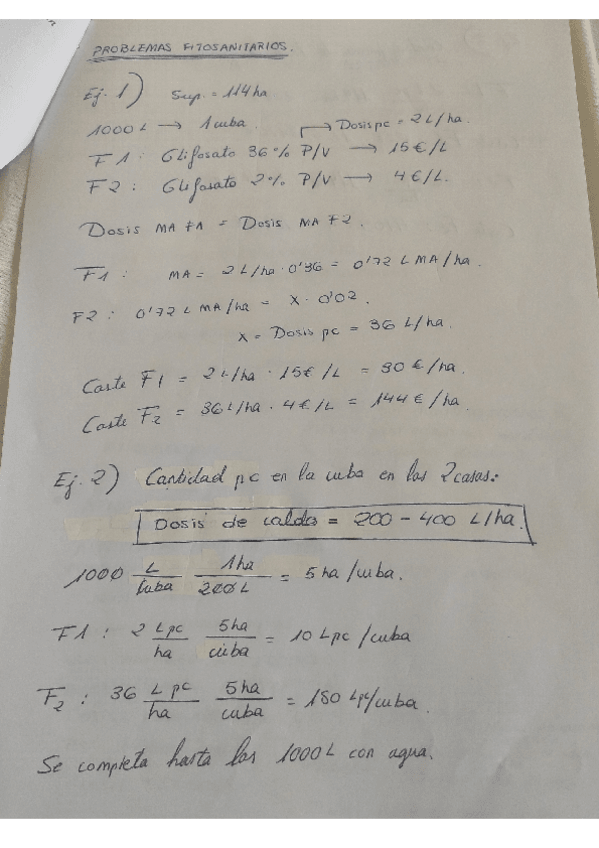 PROBLEMAS FITOSANITARIOS.
Ej. 1) Sup. = 114 ha
1000 L → 1 cuba. Dosis pc = 2 L/ha.
F1: Glifosato 36% P/V → 15 €/L
F2: Glifosato 2% P/V → 4 €/L.
Dosis MA F1 = Dosis MA F2.
F1: MA = 2 L/ha · 0'36 = 0'72 L MA/ha.
F2: 0'72 L MA/ha = X · 0'02.
X = Dosis pc = 36 L/ha.
Coste F1 = 2 L/ha · 15 € /L = 30 €/ha.
Coste F2 = 36 L/ha · 4 €/L = 144 €/ha.
Ej. 2) Cantidad pc en la cuba en los 2 casos:
Dosis de caldo = 200 - 400 L/ha.
1000 L/cuba 1 ha/200 L = 5 ha/cuba.
F1: 2 L pc/ha 5 ha/cuba = 10 L pc/cuba
F2: 36 L pc/ha 5 ha/cuba = 180 L pc/cuba.
Se completa hasta los 1000 L con agua.